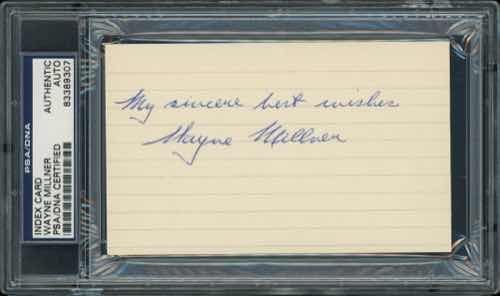 PSA/DNA
INDEX CARD
WAYNE MILLNER
PSA/DNA CERTIFIED
AUTHENTIC
AUTO
83389307
My sincere best wishes
Wayne Millner